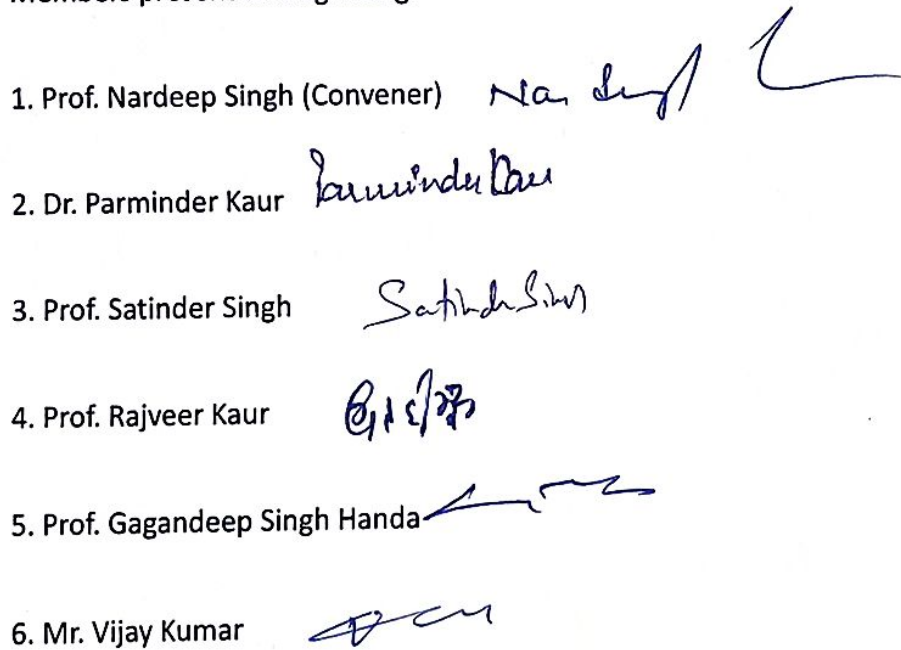 1. Prof. Nardeep Singh (Convener)
2. Dr. Parminder Kaur Parminder Kaur
3. Prof. Satinder Singh Satinder Singh
4. Prof. Rajveer Kaur
5. Prof. Gagandeep Singh Handa
6. Mr. Vijay Kumar